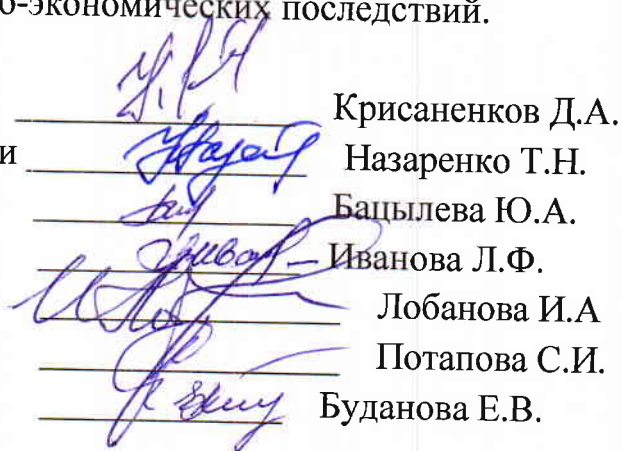 о-экономических последствий.
Крисаненков Д.А.
и Назаренко Т.Н.
Бацылева Ю.А.
Иванова Л.Ф.
Лобанова И.А
Потапова С.И.
Буданова Е.В.